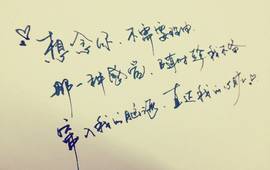 想念你、不需要理由
那一种感觉、随时趁我不备
窜入我的脑海、直达我的心财